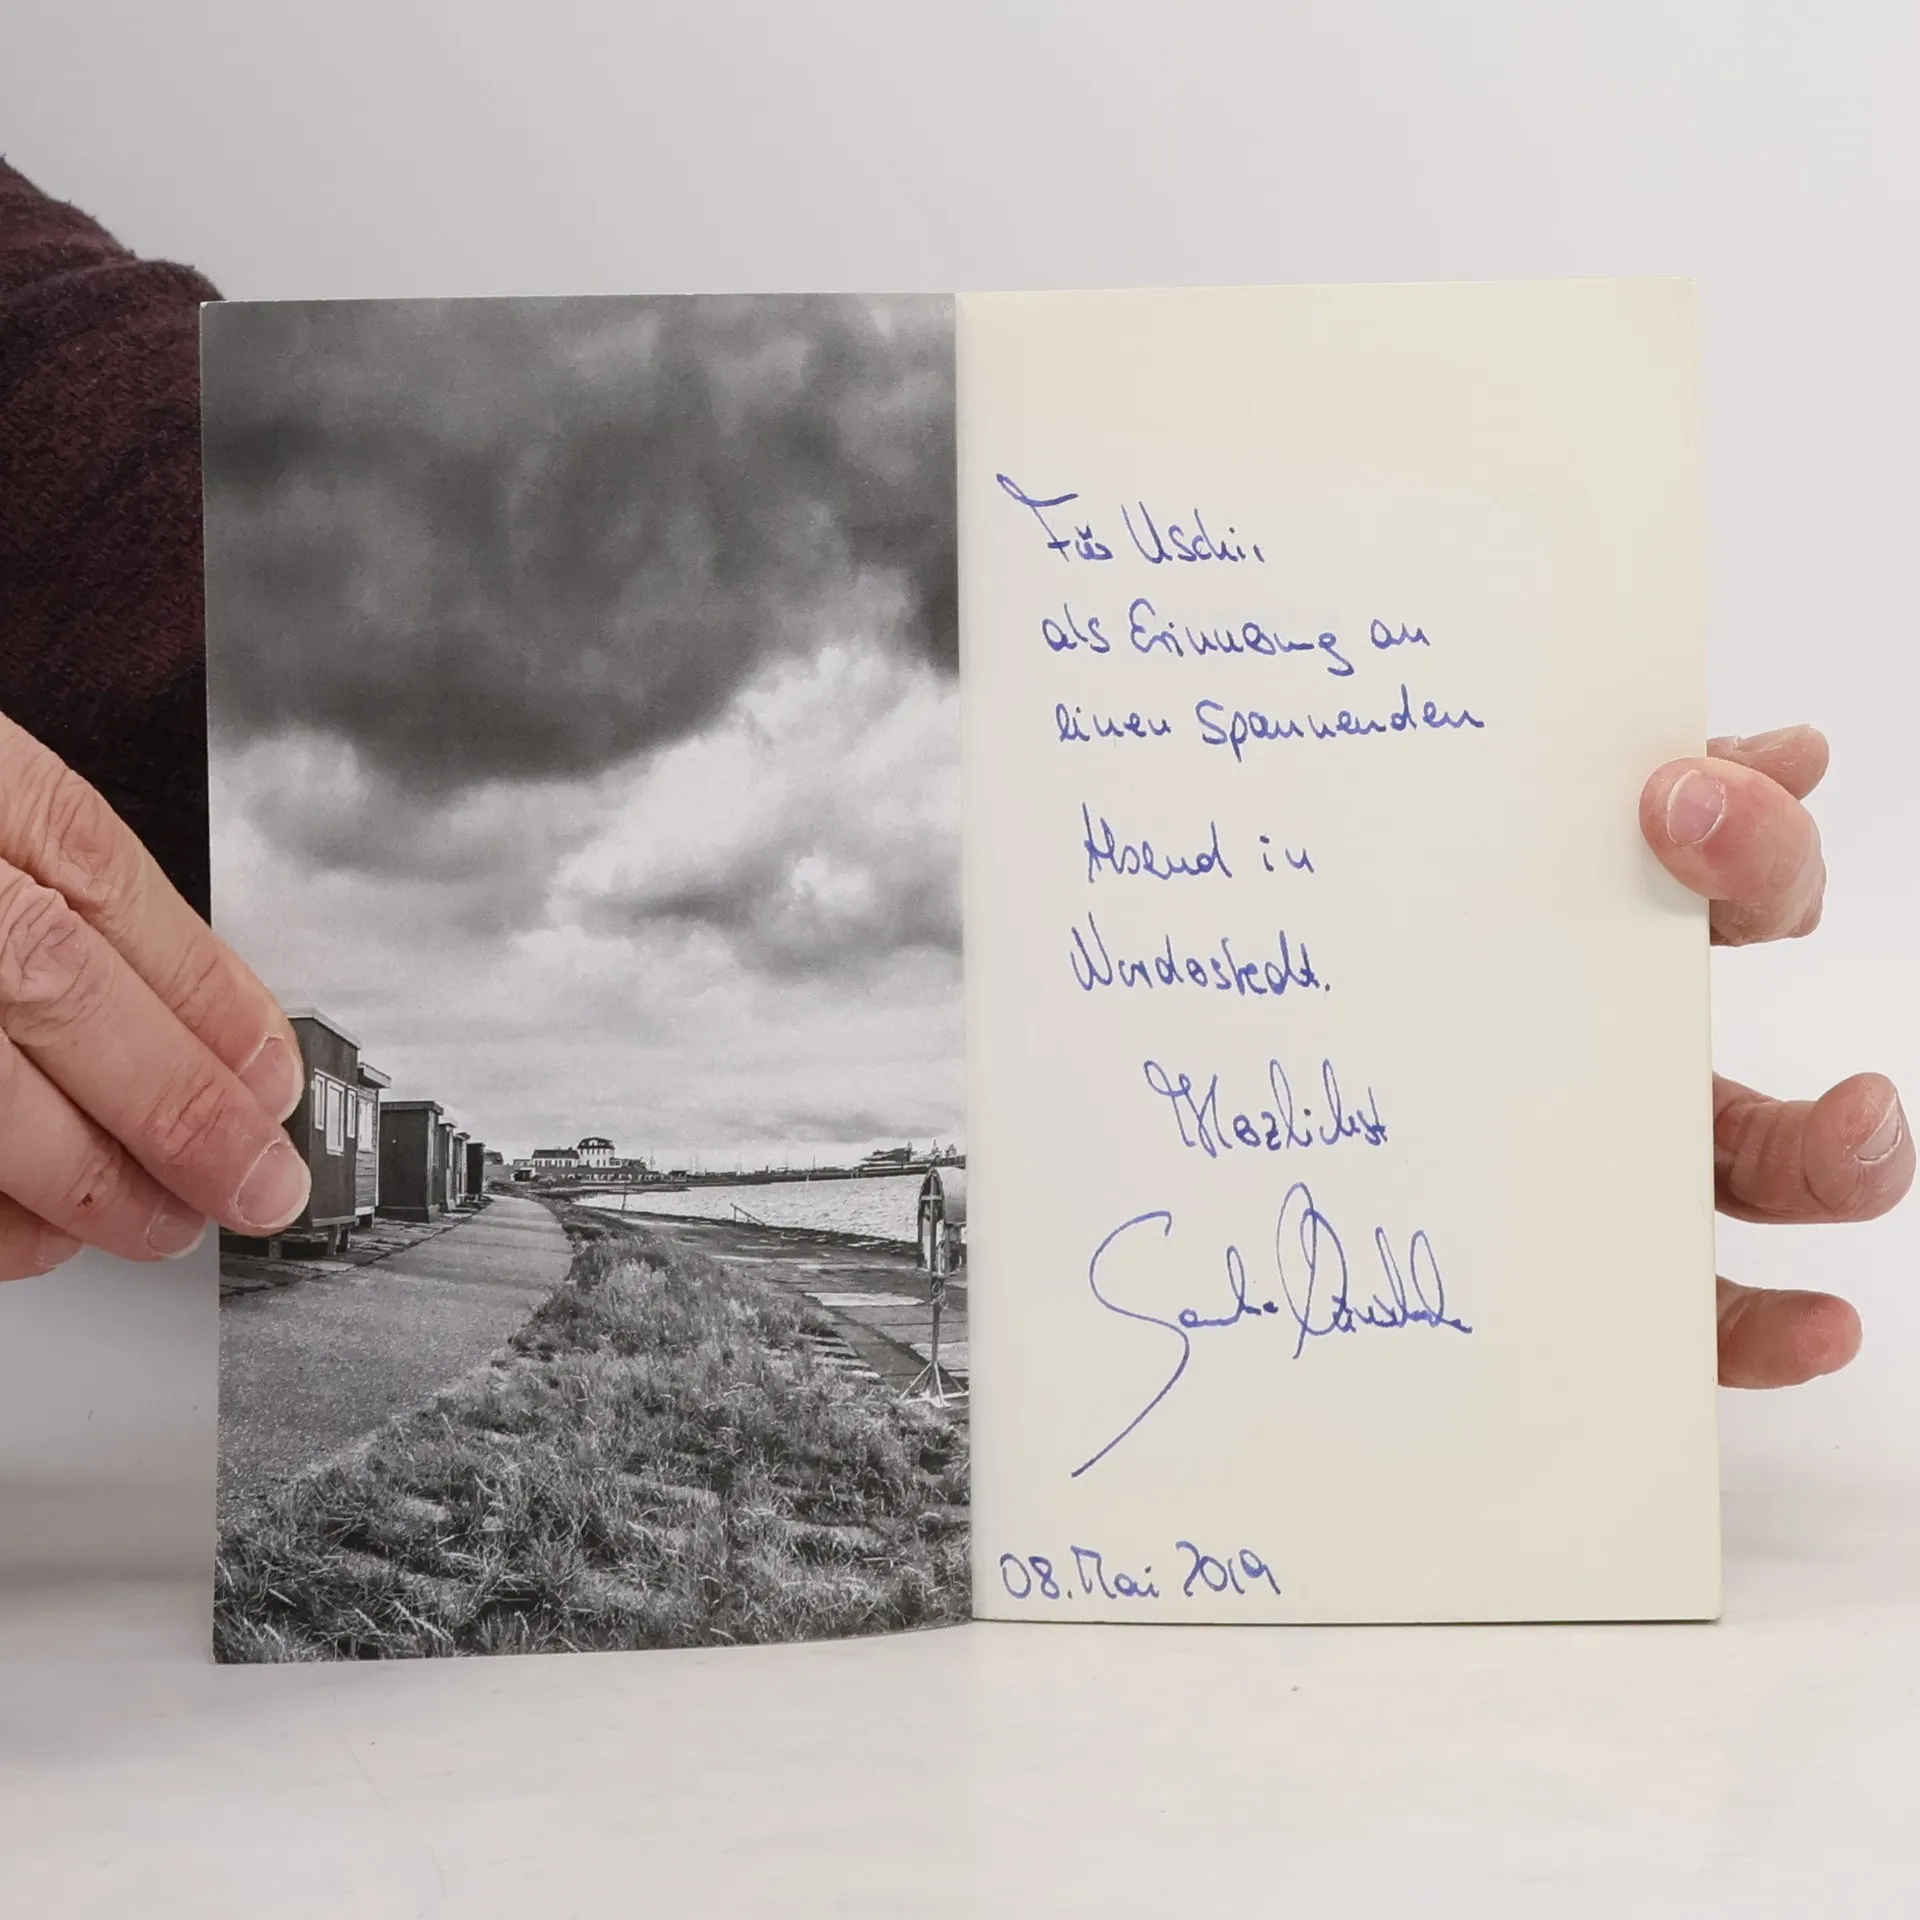 Für Uschi,
als Erinnerung an
einen spannenden
Abend in
Wunderstedt.
Herzlichst
08. Mai 2019